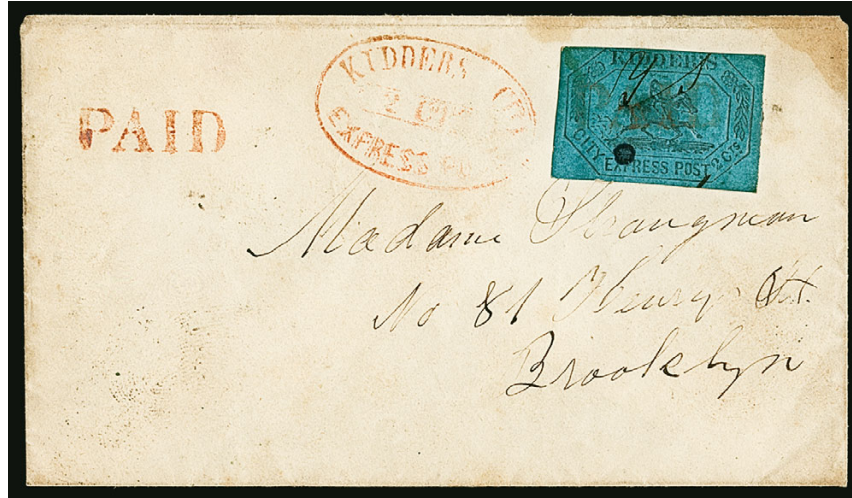 PAID
KIDDERS
2 CTS
EXPRESS PO
KIDDERS
CITY EXPRESS POST 2 Cts
PAID
Madame Strangman
No 81 Henry St.
Brooklyn